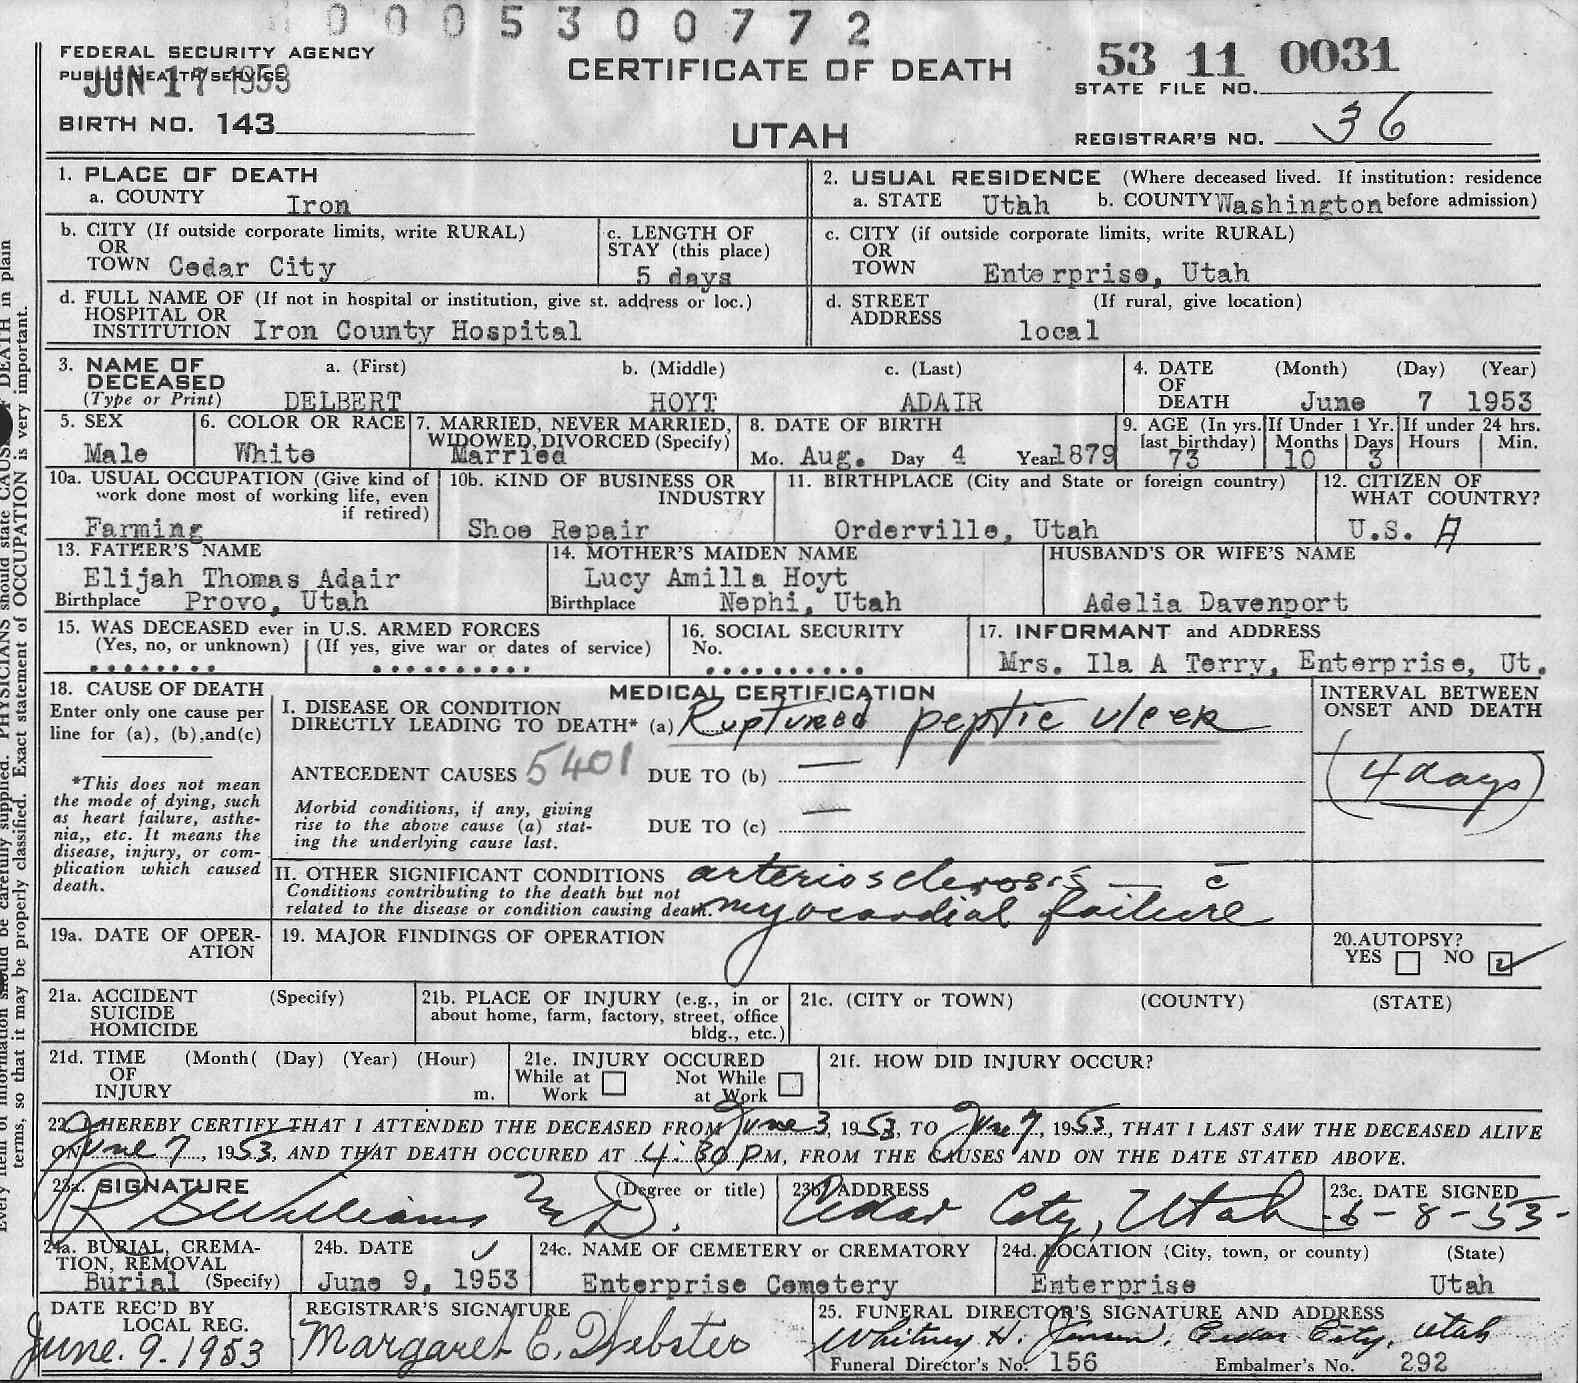 0005300772
FEDERAL SECURITY AGENCY
PUBLIC HEALTH SERVICE
JUN 17 1953
CERTIFICATE OF DEATH
53 11 0031
STATE FILE NO.
BIRTH NO. 143
UTAH
REGISTRAR'S NO. 36
1. PLACE OF DEATH
a. COUNTY Iron
2. USUAL RESIDENCE (Where deceased lived. If institution: residence
a. STATE Utah b. COUNTY Washington before admission)
b. CITY (If outside corporate limits, write RURAL)
OR
TOWN Cedar City
c. LENGTH OF
STAY (this place)
5 days
c. CITY (if outside corporate limits, write RURAL)
OR
TOWN Enterprise, Utah
d. FULL NAME OF (If not in hospital or institution, give st. address or loc.)
HOSPITAL OR
INSTITUTION Iron County Hospital
d. STREET (If rural, give location)
ADDRESS local
3. NAME OF a. (First) b. (Middle) c. (Last)
DECEASED
(Type or Print) DELBERT HOYT ADAIR
4. DATE (Month) (Day) (Year)
OF
DEATH June 7 1953
5. SEX
Male
6. COLOR OR RACE
White
7. MARRIED, NEVER MARRIED,
WIDOWED, DIVORCED (Specify)
Married
8. DATE OF BIRTH
Mo. Aug. Day 4 Year 1879
9. AGE (In yrs.
last birthday)
73
If Under 1 Yr.
Months Days
10 3
If under 24 hrs.
Hours Min.
10a. USUAL OCCUPATION (Give kind of
work done most of working life, even
if retired)
Farming
10b. KIND OF BUSINESS OR
INDUSTRY
Shoe Repair
11. BIRTHPLACE (City and State or foreign country)
Orderville, Utah
12. CITIZEN OF
WHAT COUNTRY?
U.S. A
13. FATHER'S NAME
Elijah Thomas Adair
Birthplace Provo, Utah
14. MOTHER'S MAIDEN NAME
Lucy Amilla Hoyt
Birthplace Nephi, Utah
HUSBAND'S OR WIFE'S NAME
Adelia Davenport
15. WAS DECEASED ever in U.S. ARMED FORCES
(Yes, no, or unknown) (If yes, give war or dates of service)
16. SOCIAL SECURITY
No.
17. INFORMANT and ADDRESS
Mrs. Ila A Terry, Enterprise, Ut.
18. CAUSE OF DEATH
Enter only one cause per
line for (a), (b),and(c)
*This does not mean
the mode of dying, such
as heart failure, asthe-
nia,, etc. It means the
disease, injury, or com-
plication which caused
death.
MEDICAL CERTIFICATION
I. DISEASE OR CONDITION
DIRECTLY LEADING TO DEATH* (a) Ruptured peptic ulcer
ANTECEDENT CAUSES 5401 DUE TO (b) —
Morbid conditions, if any, giving
rise to the above cause (a) stat-
ing the underlying cause last.
DUE TO (c) —
INTERVAL BETWEEN
ONSET AND DEATH
(4 days)
II. OTHER SIGNIFICANT CONDITIONS arteriosclerosis — c̄
Conditions contributing to the death but not
related to the disease or condition causing death. myocardial failure
19a. DATE OF OPER-
ATION
19. MAJOR FINDINGS OF OPERATION
20.AUTOPSY?
YES NO
21a. ACCIDENT (Specify)
SUICIDE
HOMICIDE
21b. PLACE OF INJURY (e.g., in or
about home, farm, factory, street, office
bldg., etc.)
21c. (CITY or TOWN) (COUNTY) (STATE)
21d. TIME (Month( (Day) (Year) (Hour)
OF
INJURY m.
21e. INJURY OCCURED
While at Work Not While at Work
21f. HOW DID INJURY OCCUR?
22. I HEREBY CERTIFY THAT I ATTENDED THE DECEASED FROM June 3, 1953, TO June 7, 1953, THAT I LAST SAW THE DECEASED ALIVE
ON June 7, 1953, AND THAT DEATH OCCURED AT 4:30 P.M, FROM THE CAUSES AND ON THE DATE STATED ABOVE.
23a. SIGNATURE (Degree or title)
R S Williams M.D.
23b. ADDRESS
Cedar City, Utah
23c. DATE SIGNED
6-8-53-
24a. BURIAL, CREMA-
TION, REMOVAL
Burial (Specify)
24b. DATE
June 9, 1953
24c. NAME OF CEMETERY or CREMATORY
Enterprise Cemetery
24d. LOCATION (City, town, or county) (State)
Enterprise Utah
DATE REC'D BY
LOCAL REG.
June. 9. 1953
REGISTRAR'S SIGNATURE
Margaret C. Webster
25. FUNERAL DIRECTOR'S SIGNATURE AND ADDRESS
Whitney H. Jensen, Cedar City, Utah
Funeral Director's No. 156 Embalmer's No. 292